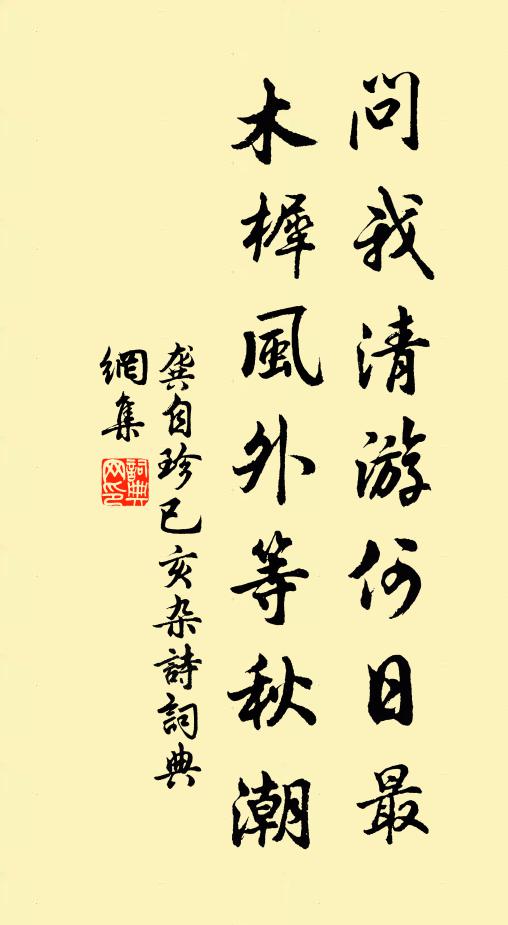 問我清游何日最
木樨風外等秋潮
龚自珍已亥杂詩詞典
網集
詞典
网印